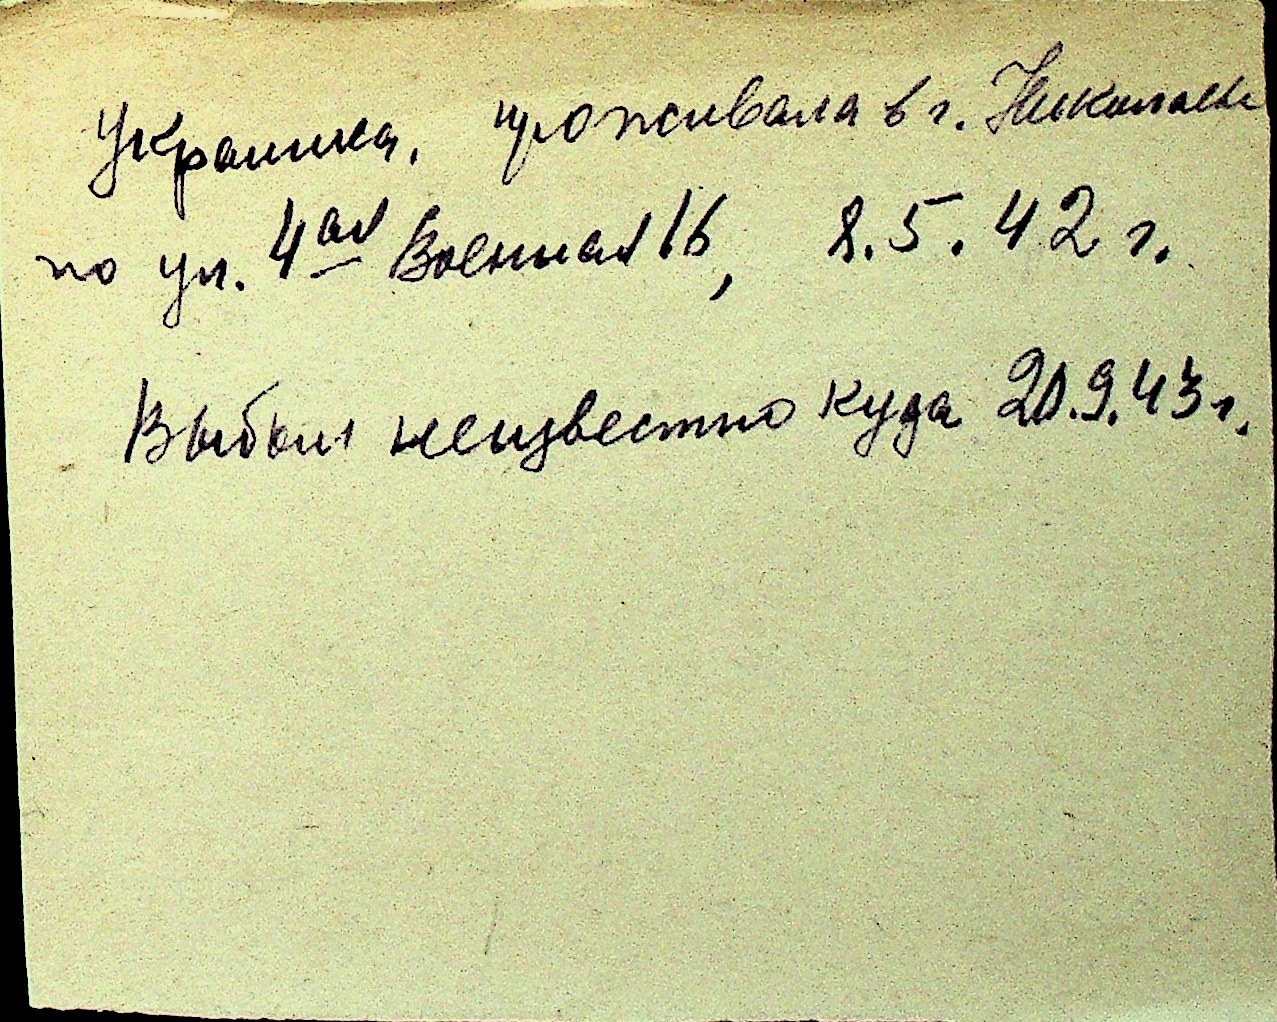 Украинка, проживала в г. Николаеве
по ул. 4ая Военная 16, 8.5.42 г.
Выбыл неизвестно куда 20.9.43 г.